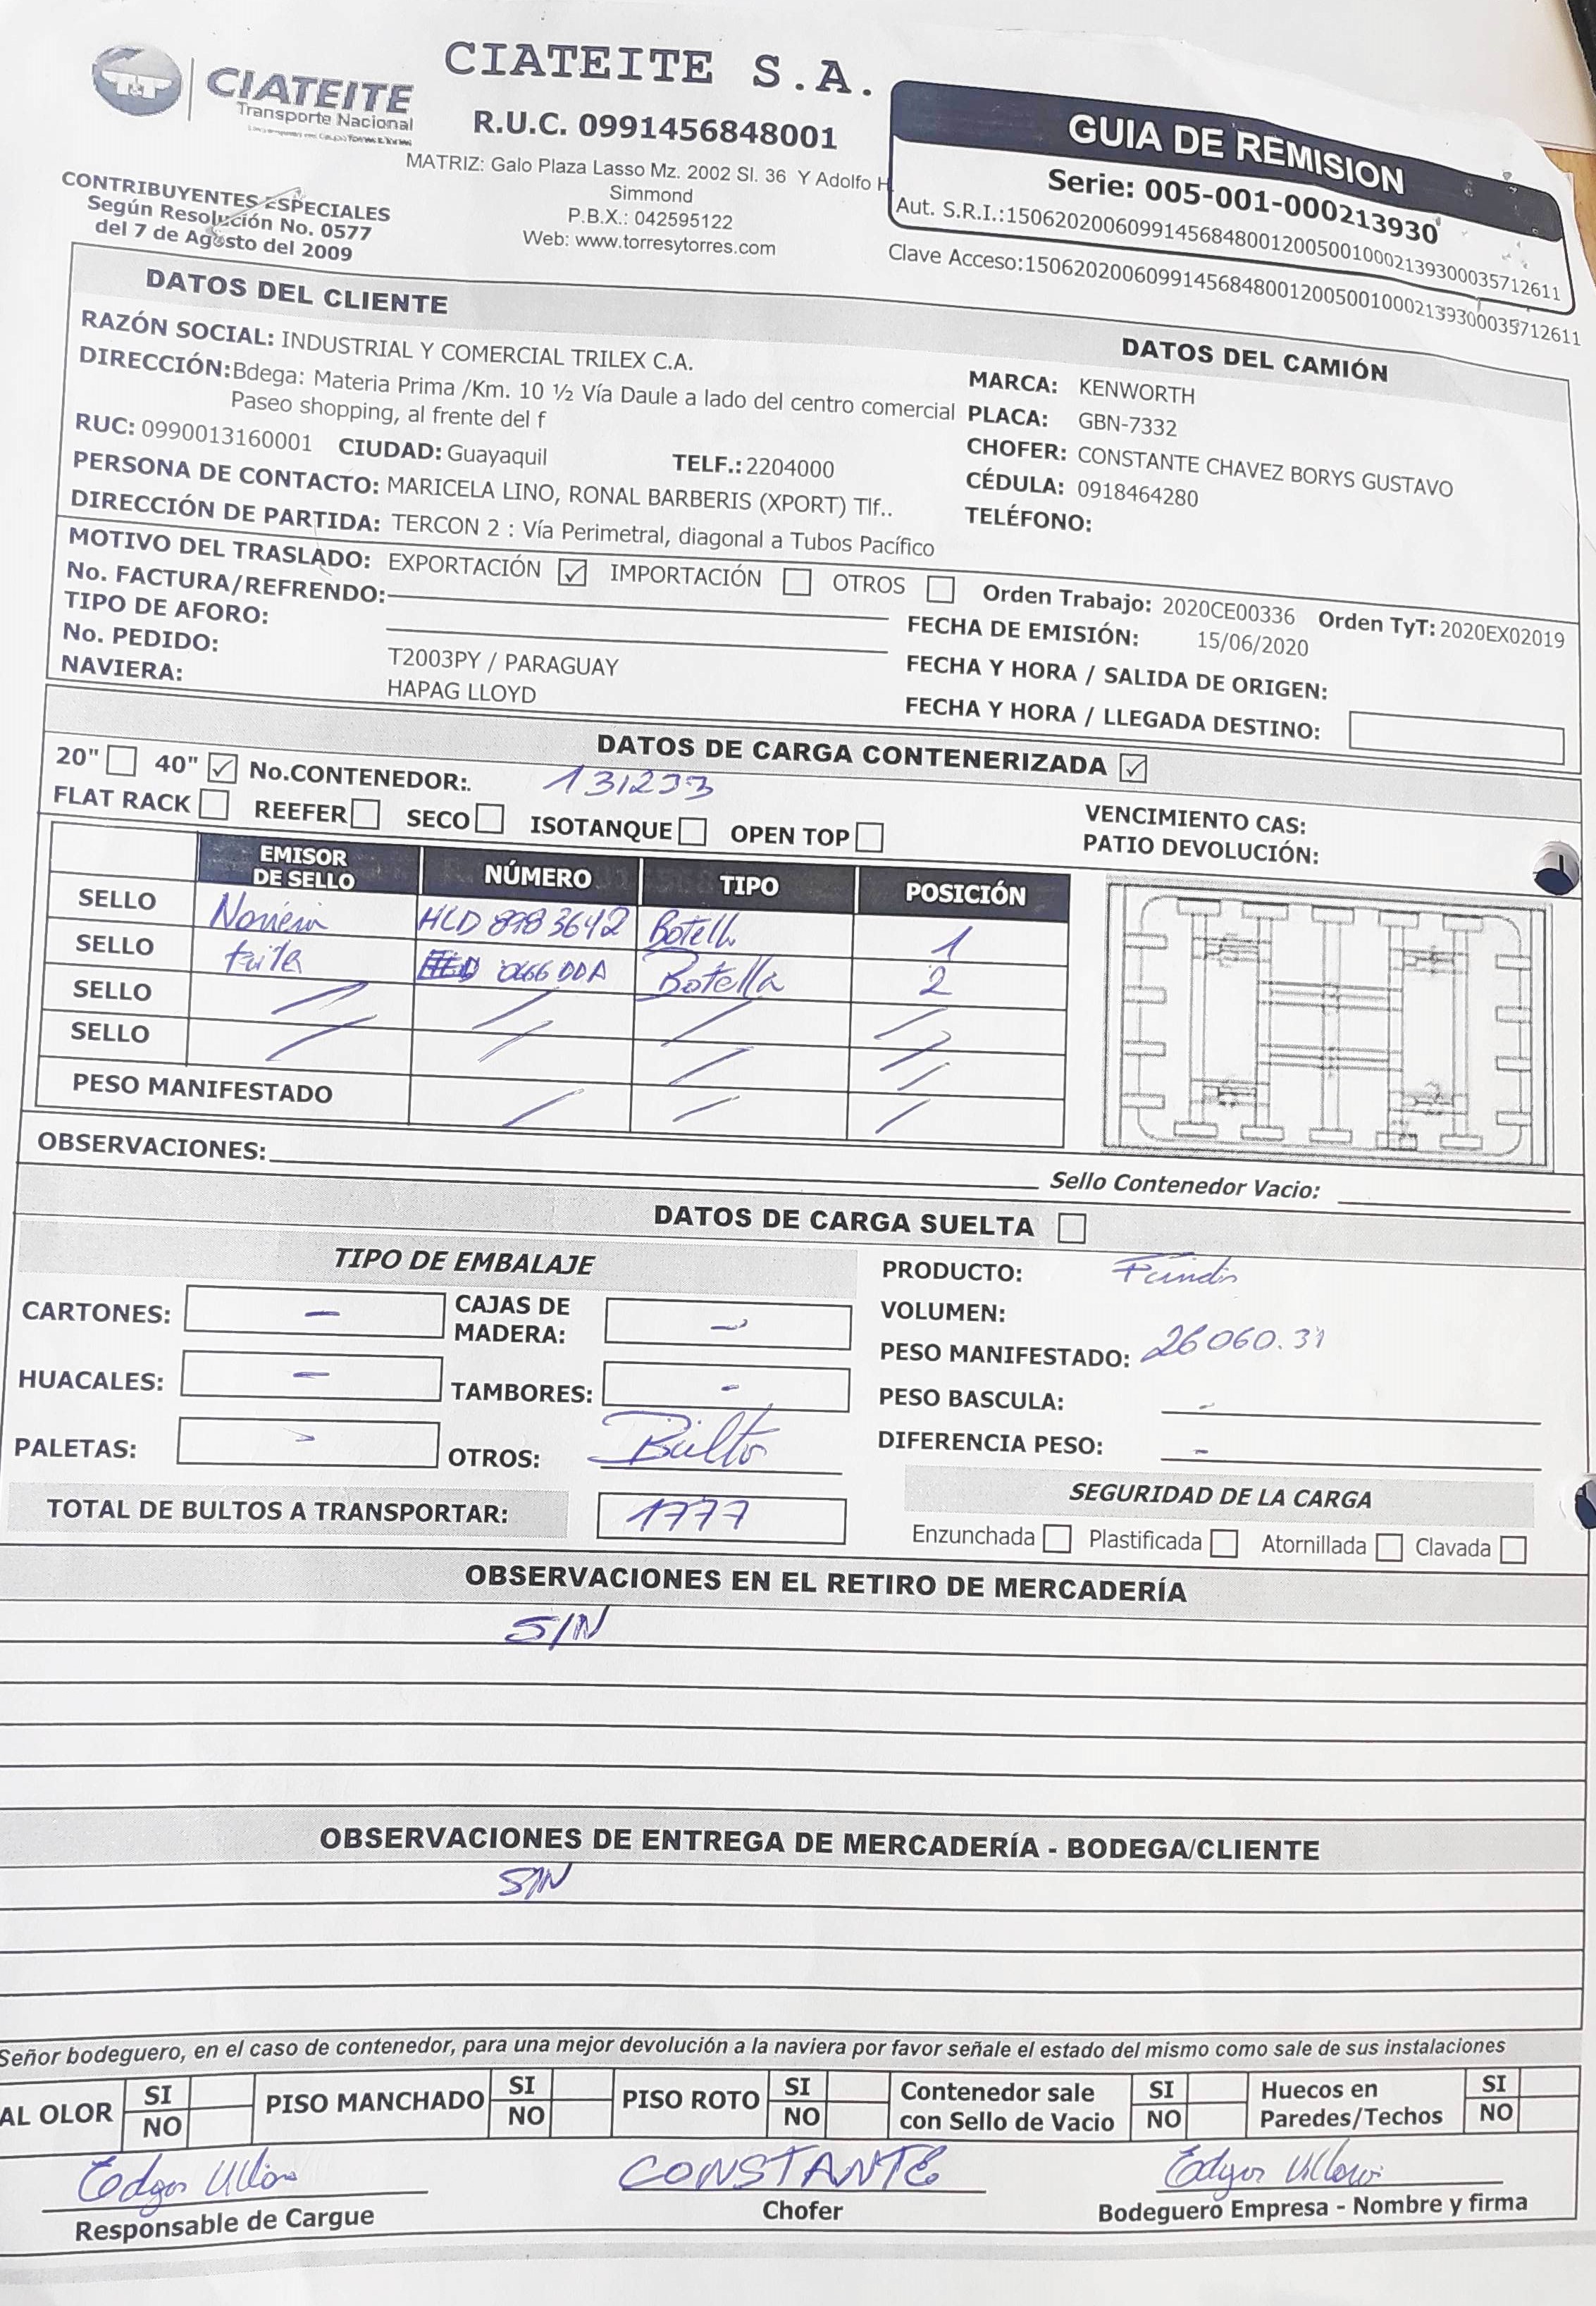 T&T CIATEITE
Transporte Nacional
CIATEITE S.A.
R.U.C. 0991456848001
MATRIZ: Galo Plaza Lasso Mz. 2002 Sl. 36 Y Adolfo H
Simmond
P.B.X.: 042595122
Web: www.torresytorres.com
CONTRIBUYENTES ESPECIALES
Según Resolución No. 0577
del 7 de Agosto del 2009
GUIA DE REMISION
Serie: 005-001-000213930
Aut. S.R.I.:1506202006099145684800120050010002139300035712611
Clave Acceso:1506202006099145684800120050010002139300035712611
DATOS DEL CLIENTE
RAZÓN SOCIAL: INDUSTRIAL Y COMERCIAL TRILEX C.A.
DIRECCIÓN:Bdega: Materia Prima /Km. 10 ½ Vía Daule a lado del centro comercial
Paseo shopping, al frente del f
RUC: 0990013160001 CIUDAD: Guayaquil TELF.: 2204000
PERSONA DE CONTACTO: MARICELA LINO, RONAL BARBERIS (XPORT) Tlf..
DIRECCIÓN DE PARTIDA: TERCON 2 : Vía Perimetral, diagonal a Tubos Pacífico
DATOS DEL CAMIÓN
MARCA: KENWORTH
PLACA: GBN-7332
CHOFER: CONSTANTE CHAVEZ BORYS GUSTAVO
CÉDULA: 0918464280
TELÉFONO:
MOTIVO DEL TRASLADO: EXPORTACIÓN ✓ IMPORTACIÓN OTROS Orden Trabajo: 2020CE00336 Orden TyT: 2020EX02019
No. FACTURA/REFRENDO:
TIPO DE AFORO:
No. PEDIDO: T2003PY / PARAGUAY
NAVIERA: HAPAG LLOYD
FECHA DE EMISIÓN: 15/06/2020
FECHA Y HORA / SALIDA DE ORIGEN:
FECHA Y HORA / LLEGADA DESTINO:
DATOS DE CARGA CONTENERIZADA ✓
20" 40" ✓ No.CONTENEDOR:. 131233
FLAT RACK REEFER SECO ISOTANQUE OPEN TOP
VENCIMIENTO CAS:
PATIO DEVOLUCIÓN:
EMISOR DE SELLO NÚMERO TIPO POSICIÓN
SELLO HLD 8983642 Botella 1
SELLO 0466 DDA Botella 2
SELLO
SELLO
PESO MANIFESTADO
OBSERVACIONES:
Sello Contenedor Vacio:
DATOS DE CARGA SUELTA
TIPO DE EMBALAJE
CARTONES: - CAJAS DE MADERA: -
HUACALES: - TAMBORES: -
PALETAS: - OTROS: Bulto
TOTAL DE BULTOS A TRANSPORTAR: 1777
PRODUCTO:
VOLUMEN:
PESO MANIFESTADO: 26060.31
PESO BASCULA: -
DIFERENCIA PESO: -
SEGURIDAD DE LA CARGA
Enzunchada Plastificada Atornillada Clavada
OBSERVACIONES EN EL RETIRO DE MERCADERÍA
S/N
OBSERVACIONES DE ENTREGA DE MERCADERÍA - BODEGA/CLIENTE
S/N
Señor bodeguero, en el caso de contenedor, para una mejor devolución a la naviera por favor señale el estado del mismo como sale de sus instalaciones
AL OLOR SI NO PISO MANCHADO SI NO PISO ROTO SI NO Contenedor sale con Sello de Vacio SI NO Huecos en Paredes/Techos SI NO
Edgar CONSTANTE Edgar
Responsable de Cargue Chofer Bodeguero Empresa - Nombre y firma